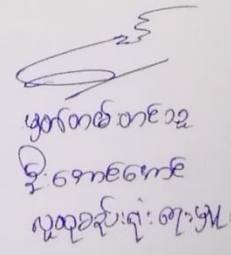 မှတ်တမ်းတင်သူ
ဦးအောင်အောင်
လူထုစည်းရုံးရေးမှူး